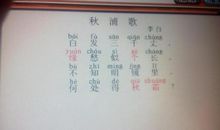 秋浦歌
李白
bái fà sān qiān zhàng
白发三千丈
yuán chóu sì gè cháng
缘愁似个长
bù zhī míng jìng lǐ
不知明镜里
hé chù dé qiū shuāng
何处得秋霜